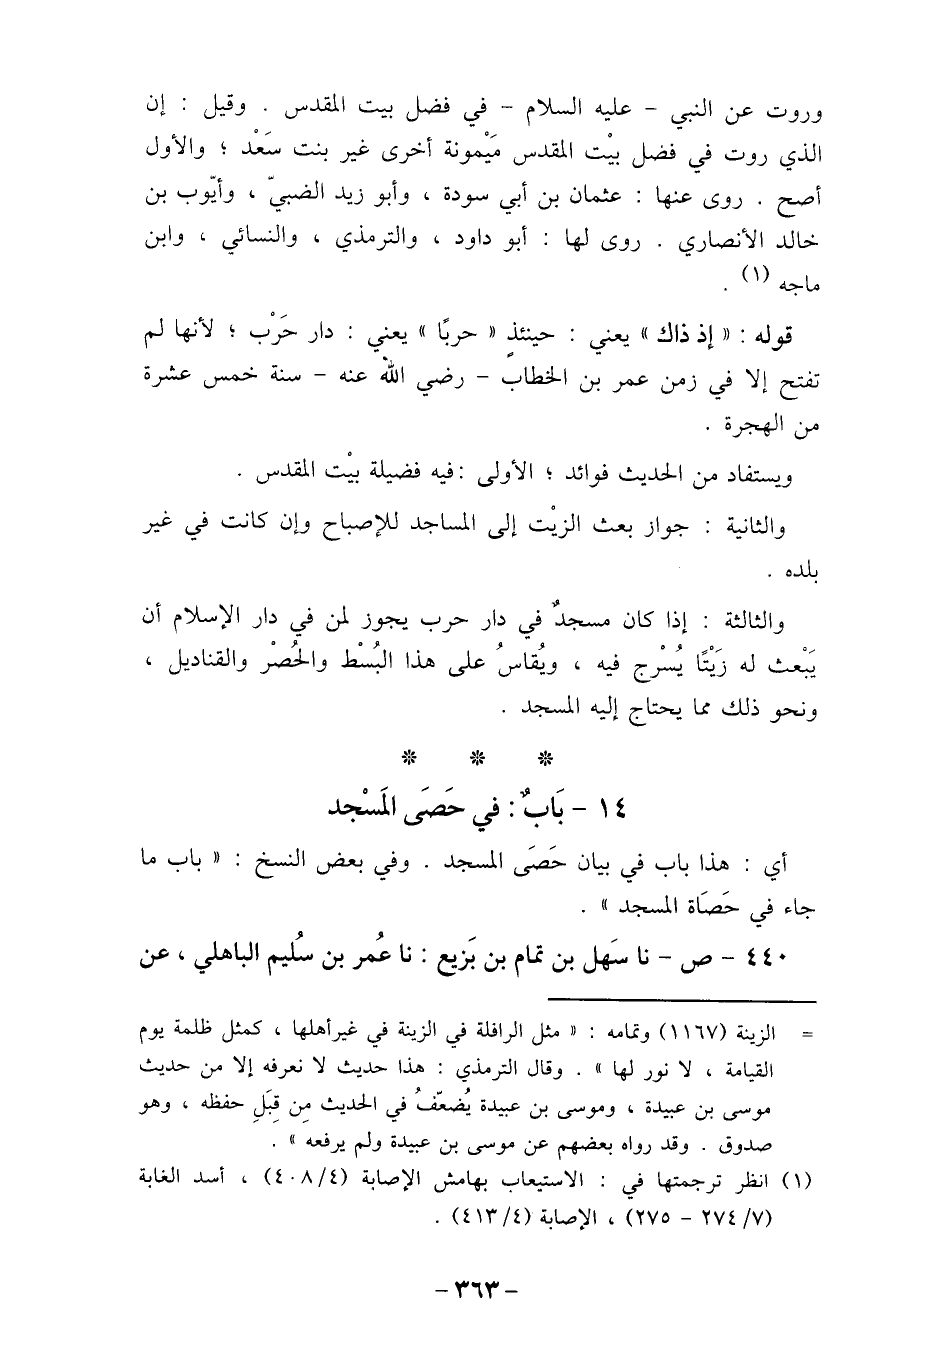 وروت عن النبي - عليه السلام - في فضل بيت المقدس . وقيل : إن
الذي روت في فضل بيْت المقدس مَيْمونة أخرى غير بنت سَعْد ؛ والأول
أصح . روى عنها : عثمان بن أبي سودة ، وأبو زيد الضبيّ ، وأيّوب بن
خالد الأنصاري . روى لها : أبو داود ، والترمذي ، والنسائي ، وابن
ماجه (١) .
قوله : « إذ ذاك » يعني : حينئذٍ « حربًا » يعني : دار حَرْب ؛ لأنها لم
تفتح إلا في زمن عمر بن الخطاب - رضي الله عنه - سنة خمس عشرة
من الهجرة .
ويستفاد من الحديث فوائد ؛ الأولى : فيه فضيلة بيْت المقدس .
والثانية : جواز بعث الزيْت إلى المساجد للإصباح وإن كانت في غير
بلده .
والثالثة : إذا كان مسجدٌ في دار حرب يجوز لمن في دار الإسلام أن
يَبْعث له زَيْتًا يُسْرج فيه ، ويُقاسُ على هذا البُسْط والحُصْر والقناديل ،
ونحو ذلك مما يحتاج إليه المسجد .
* * *
١٤ - بَابٌ : في حَصَى المَسْجد
أي : هذا باب في بيان حَصَى المسجد . وفي بعض النسخ : « باب ما
جاء في حَصَاة المسجد » .
٤٤٠ - ص - نا سَهل بن تمام بن بَزيع : نا عمُر بن سُليم الباهلي ، عن
= الزينة (١١٦٧) وتمامه : « مثل الرافلة في الزينة في غير أهلها ، كمثل ظلمة يوم
القيامة ، لا نور لها » . وقال الترمذي : هذا حديث لا نعرفه إلا من حديث
موسى بن عبيدة ، وموسى بن عبيدة يُضعّفُ في الحديث مِن قِبَلِ حفظه ، وهو
صدوق . وقد رواه بعضهم عن موسى بن عبيدة ولم يرفعه » .
(١) انظر ترجمتها في : الاستيعاب بهامش الإصابة (٤/ ٤٠٨) ، أسد الغابة
(٧/ ٢٧٤ - ٢٧٥) ، الإصابة (٤/ ٤١٣) .
- ٣٦٣ -